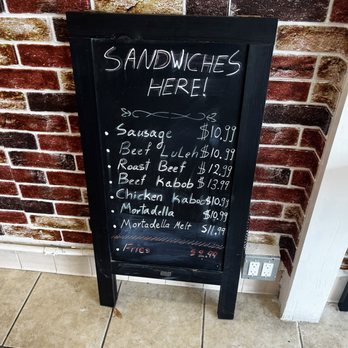 SANDWICHES
HERE!
• Sausage $10.99
• Beef Luleh $10.99
• Roast Beef $12.99
• Beef Kabob $13.99
• Chicken Kabob $10.99
• Mortadella $10.99
• Mortadella Melt $11.99
• Fries $2.99